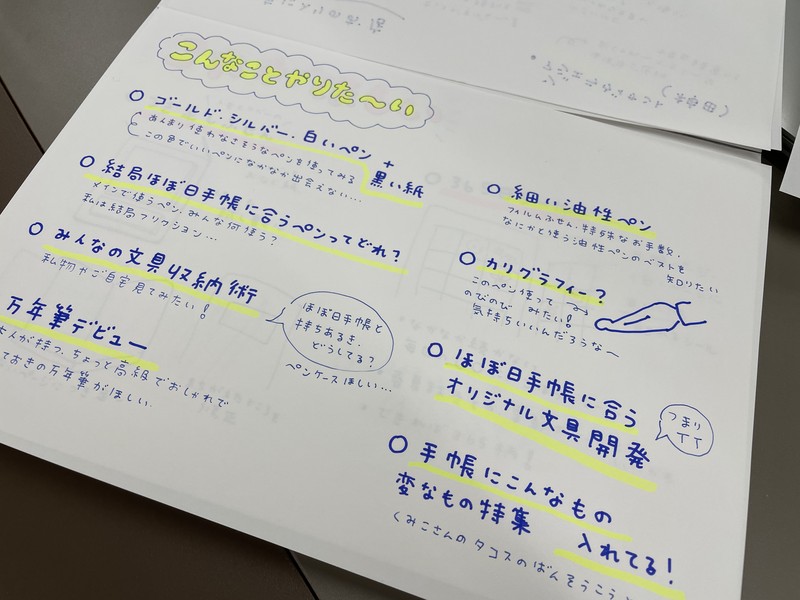 こんなことやりた〜い
○ ゴールド・シルバー・白いペン + 黒い紙
あんまり使わなさそうなペンを使ってみる
この色でいいペンになかなか出会えない…
○ 結局ほぼ日手帳に合うペンってどれ？
メインで使うペン、みんな何使う？
私は結局フリクション…
○ みんなの文具収納術
私物やご自宅見てみたい！
ほぼ日手帳と
持ちあるき、
どうしてる？
ペンケースほしい…
万年筆デビュー
大人が持つ、ちょっと高級でおしゃれで
ておきの万年筆がほしい
○ 細い油性ペン
フィルムふせん、特殊なお手数、
なにかと使う油性ペンのベストを
知りたい
○ カリグラフィー？
このペン使って
のびのび みたい！
気持ちいいんだろうな〜
○ ほぼ日手帳に合う
オリジナル文具開発
つまり
TT
○ 手帳にこんなもの
変なもの特集 入れてる！
くみこさんのタコスのばんそうこう